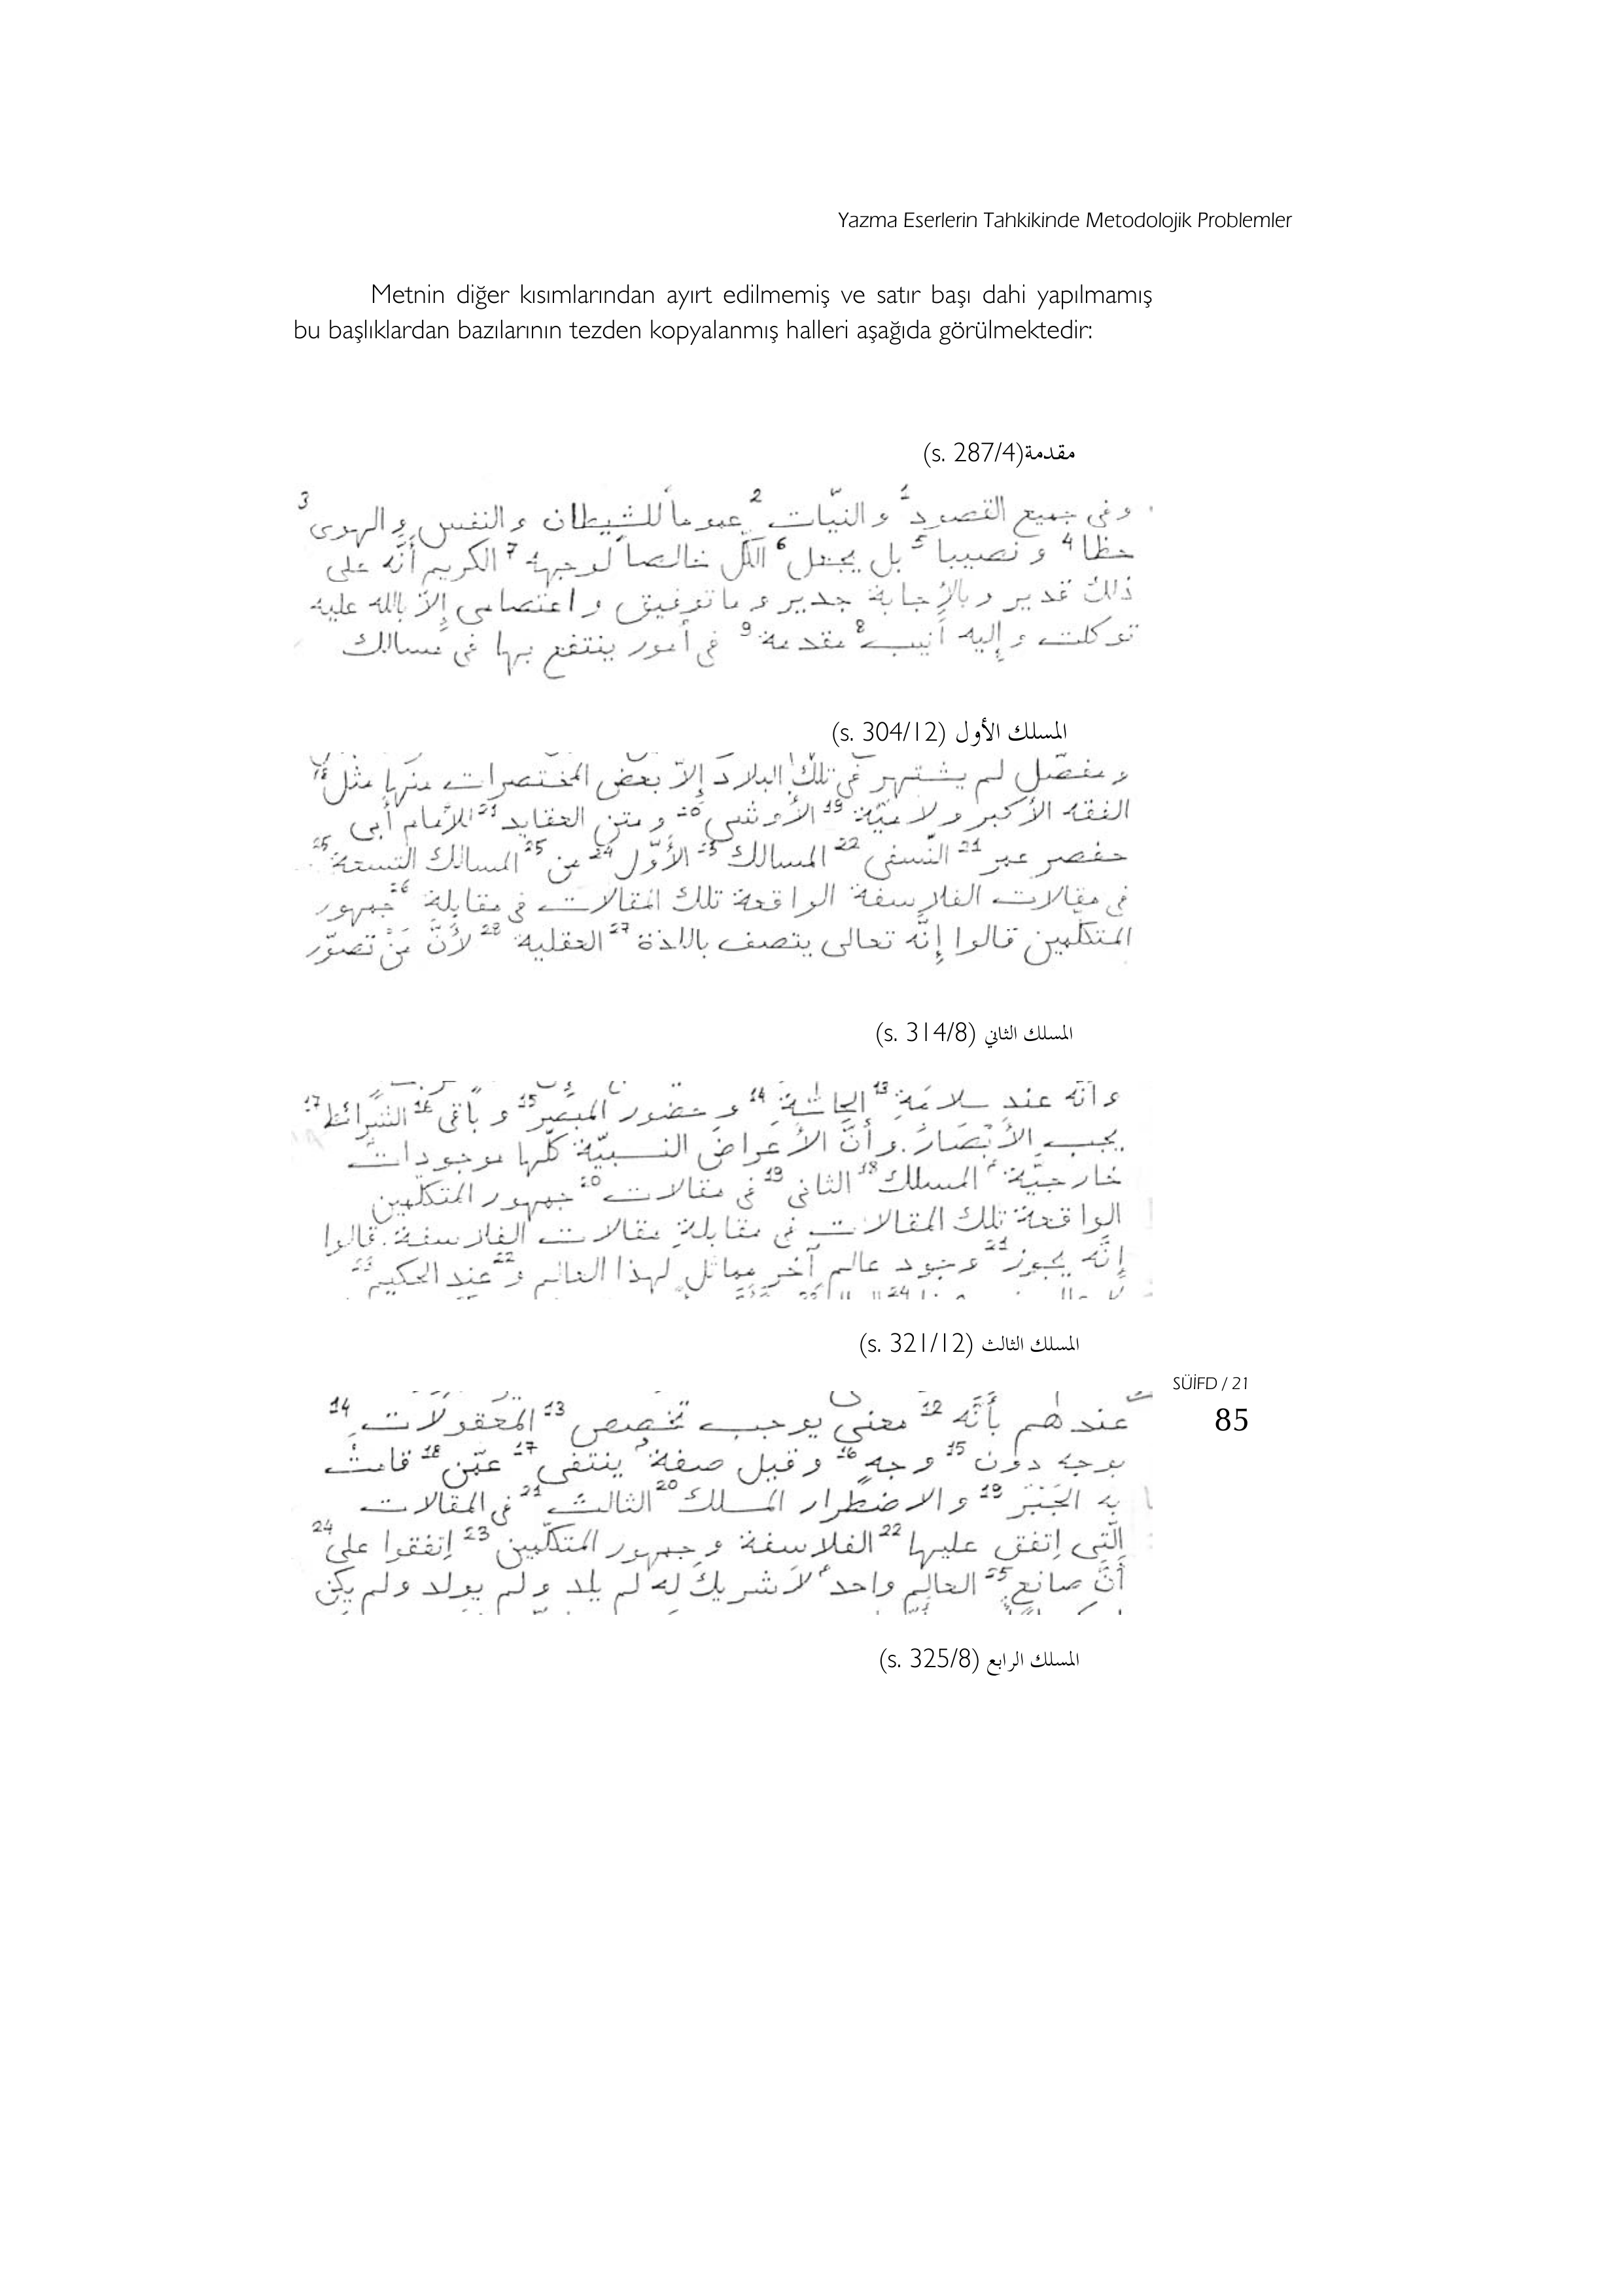 Yazma Eserlerin Tahkikinde Metodolojik Problemler
Metnin diğer kısımlarından ayırt edilmemiş ve satır başı dahi yapılmamış
bu başlıklardan bazılarının tezden kopyalanmış halleri aşağıda görülmektedir:
مقدمة(s. 287/4)
وفى جميع القصود 1 والنيّات 2 عموماً للشيطان والنفس والهوى 3
حظا 4 ونصيبا 5 بل يجعل 6 الكل خالصاً لوجهه 7 الكريم أنّه على
ذلك قدير وبالإجابة جدير وما توفيق واعتصامى إلاّ بالله عليه
توكلت وإليه أنيب 8 مقدمة 9 فى أمور ينتفع بها فى مسالك
المسلك الأول (s. 304/12)
ومفصّل لم يشتهر فى تلك البلاد إلاّ بعض المختصرات منها مثل 18
الفقه الأكبر ولاميّة 19 الأوشى 20 ومتن العقايد 21 للأمام أبى
حفصر عمر 21 النّسفى 22 المسالك 23 الأوّل 24 من 25 المسالك التسعة 25
فى مقالات الفلاسفة الواقعة تلك المقالات فى مقابلة 26 جمهور
المتكلّمين قالوا إنّه تعالى يتصف باللذة 27 العقلية 28 لأنّ مَنْ تصوّر
المسلك الثاني (s. 314/8)
وأنّه عند سلامَةِ 13 الحاسَّةِ 14 وحضور المبصَر 15 وباقى 16 الشَّرائط 17
يجب الأَبْصَارُ. وأنَّ الأعراضَ النسبيّة كلّها موجودات
خارجيّة المسلك 18 الثانى 19 فى مقالات 20 جمهور المتكلّمين
الواقعة تلك المقالات فى مقابلةِ مقالات الفلاسفة. قالوا
إنّه يجوز 21 وجود عالم آخر مماثل لهذا العالم و 22 عند الحكيم 23
المسلك الثالث (s. 321/12)
عندهم بأنّه 12 معنى يوجب تخصيص 13 المقولات 14
بوجه دون 15 وجهٍ 16 وقيل صفة ينتفى 17 عمّن 18 قامت
به الجَبْرُ 19 والاضطرار المسلك 20 الثالث 21 فى المقالات
الّتى اِتفق عليها 22 الفلاسفة وجمهور المتكلّمين 23 اِتفقوا على 24
أنَّ صانع 25 العالم واحد لاَ شريكَ له لم يلد ولم يولد ولم يكن
SÜİFD / 21
85
المسلك الرابع (s. 325/8)